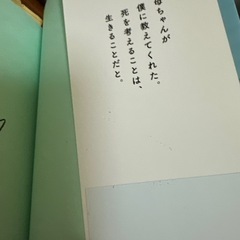 母ちゃんが
僕に教えてくれた。
死を考えることは、
生きることだと。